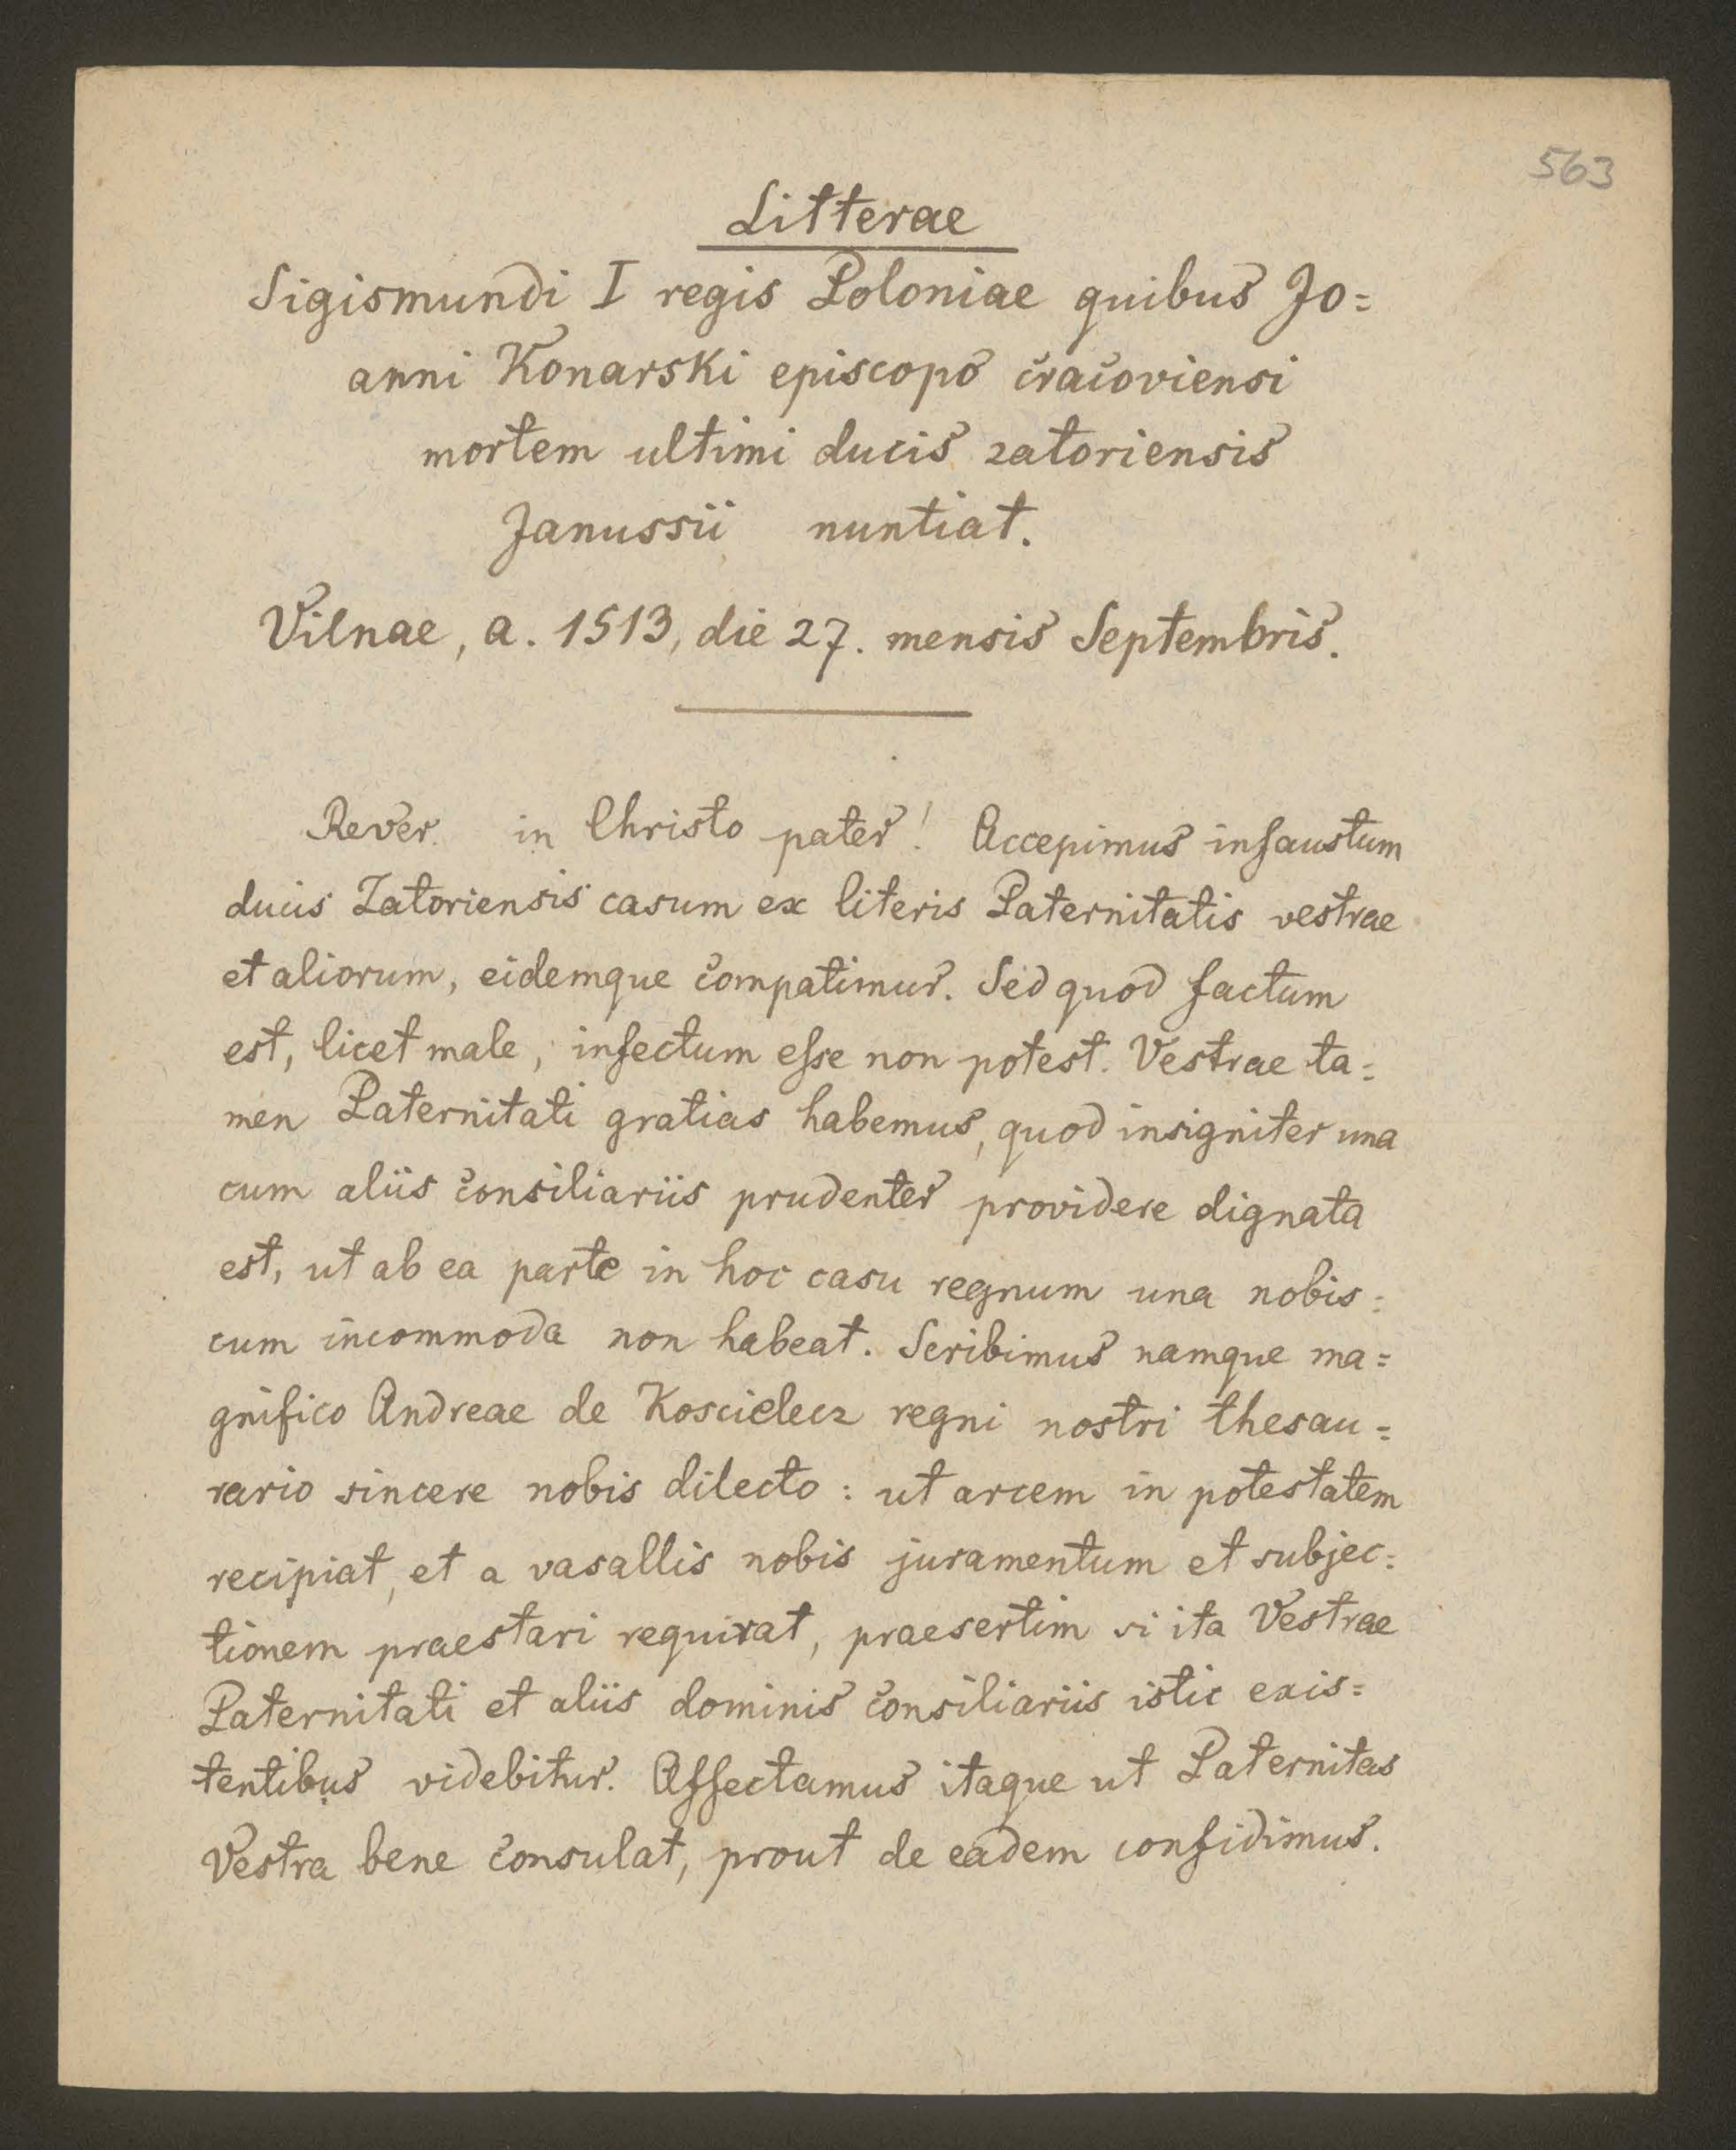 563
Litterae
Sigismundi I regis Poloniae quibus Jo=
anni Konarski episcopo cracoviensi
mortem ultimi ducis zatoriensis
Janussii nuntiat.
Vilnae, a. 1513, die 27. mensis Septembris.
Rever. in Christo pater! Accepimus infaustum
ducis Zatoriensis casum ex literis Paternitatis vestrae
et aliorum, eidemque compatimur. Sed quod factum
est, licet male, infectum esse non potest. Vestrae ta=
men Paternitati gratias habemus, quod insigniter una
cum aliis consiliariis prudenter providere dignata
est, ut ab ea parte in hoc casu regnum una nobis=
cum incommoda non habeat. Scribimus namque ma=
gnifico Andreae de Koscielecz regni nostri thesau=
rario sincere nobis dilecto: ut arcem in potestatem
recipiat, et a vasallis nobis juramentum et subjec=
tionem praestari requirat, praesertim si ita Vestrae
Paternitati et aliis dominis consiliariis istic exis=
tentibus videbitur. Affectamus itaque ut Paternitas
Vestra bene consulat, prout de eadem confidimus.